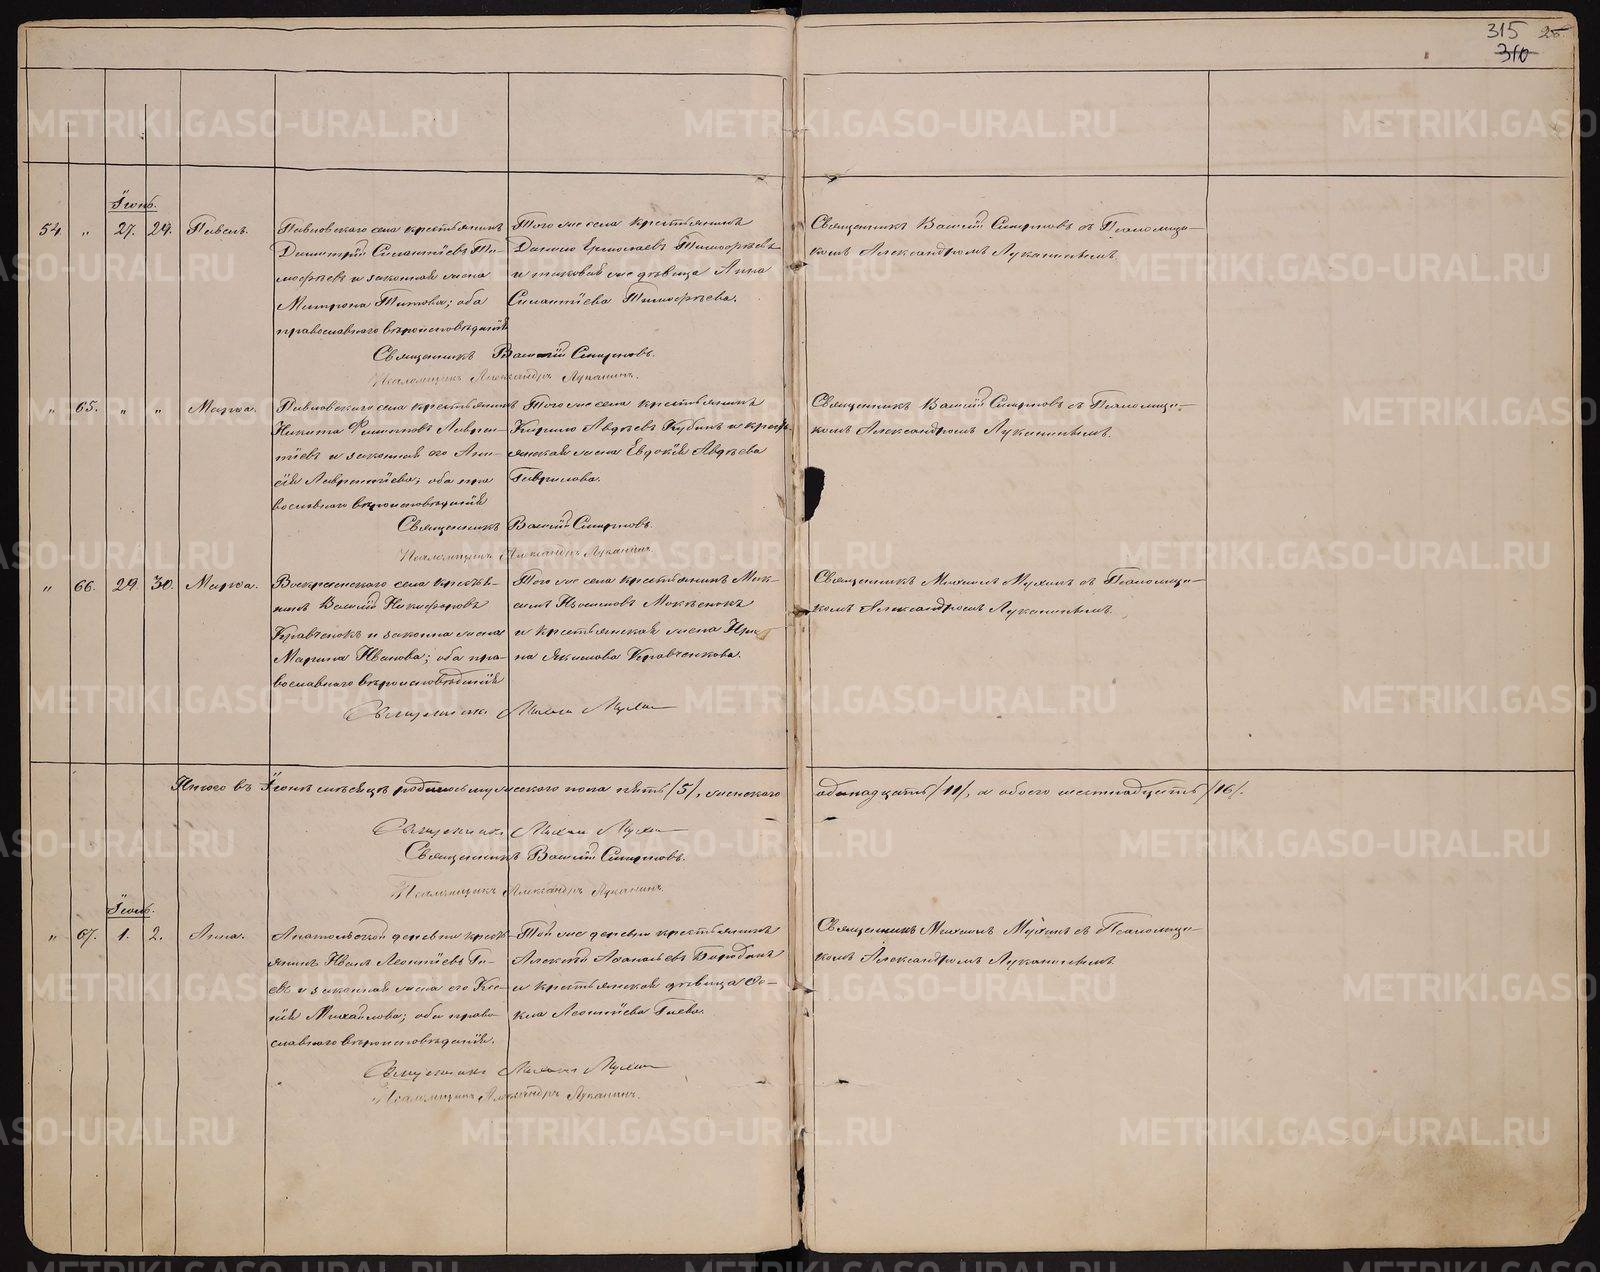 315 25
310
Іюнь.
54 " 27. 29. Павелъ.
Павловскаго села крестьянинъ
Димитрій Силантіевъ Ти-
мофѣевъ и законная жена
Матрона Титова; оба
православнаго вѣроисповѣданія
Того же села крестьянинъ
Данило Ермолаевъ Тимофѣевъ
и таковая же дѣвица Анна
Силантіева Тимофѣева.
Священникъ Василій Смирновъ съ Псаломщи-
комъ Александромъ Луканинымъ.
Священникъ Василій Смирновъ.
Псаломщикъ Александръ Луканинъ.
" 65. " " Марѳа.
Павловскаго села крестьянинъ
Никита Филипповъ Лаврен-
тіевъ и законная его
Лаврентіева; оба пра
вославнаго вѣроисповѣданія
Того же села крестьянинъ
Кирило Авдѣевъ Кубинъ и крест-
янская жена Евдокія Авдѣева
Гаврилова.
Священникъ Василій Смирновъ съ Псаломщи-
комъ Александромъ Луканинымъ.
Священникъ Василій Смирновъ.
Псаломщикъ Александръ Луканинъ.
" 66. 29. 30. Марѳа.
Воскресенскаго села крестья-
нинъ Василій Никифоровъ
Кравченокъ и законна жена
Марина Иванова; оба пра-
вославнаго вѣроисповѣданія
Того же села крестьянинъ Мак-
симъ
и крестьянская жена Ири-
на Якимова Кравченкова.
Священникъ Михаилъ Мухинъ съ Псаломщи-
комъ Александромъ Луканинымъ.
Священникъ Михаилъ Мухинъ
Итого въ Іюнѣ мѣсяцѣ родилось мужескаго пола пять /5/, женскаго одинадцать /11/, а обоего шестнадцать /16/.
Священникъ Михаилъ Мухинъ
Священникъ Василій Смирновъ.
Псаломщикъ Александръ Луканинъ.
Іюль.
" 67. 1. 2. Анна.
Анатольской деревни крест-
янинъ Иванъ Леонтіевъ Га-
евъ и законная жена его Ксе-
нія Михайлова; оба право-
славнаго вѣроисповѣданія.
Той же деревни крестьянинъ
Алексѣй Аѳанасьевъ
и крестьянская дѣвица Ѳе-
кла Леонтіева Гаева.
Священникъ Михаилъ Мухинъ съ Псаломщи-
комъ Александромъ Луканинымъ.
Священникъ Михаилъ Мухинъ
Псаломщикъ Александръ Луканинъ.
METRIKI.GASO-URAL.RU